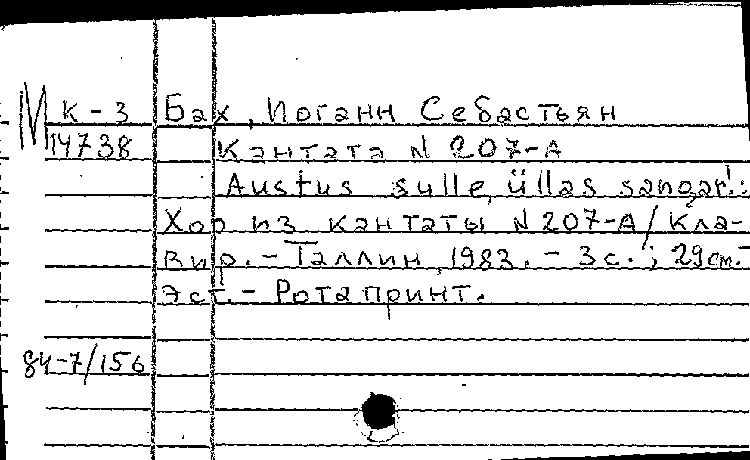 М к-3 Бах, Иоганн Себастьян
14738 Кантата N 207-А
Austus sulle, üllas sangar!:
Хор из кантаты N 207-А / Кла-
вир. - Таллин, 1983. - 3 с.; 29 cm. -
Эст. - Ротапринт.
84-7/156